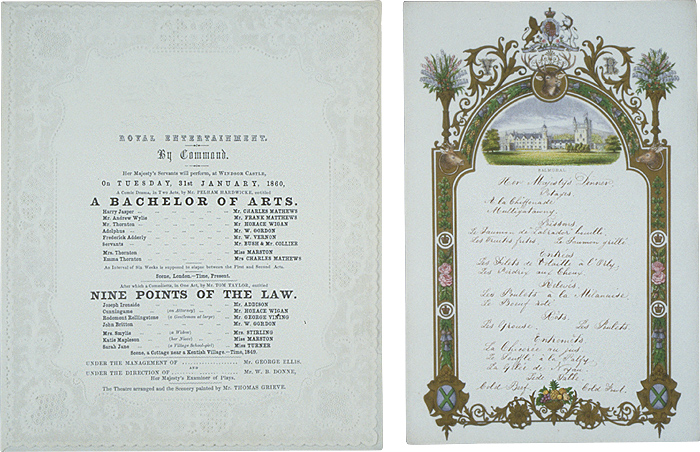 ROYAL ENTERTAINMENT.
By Command.
Her Majesty's Servants will perform, at WINDSOR CASTLE,
On TUESDAY, 31st JANUARY, 1860,
A Comic Drama, in Two Acts, by Mr. PELHAM HARDWICKE, entitled
A BACHELOR OF ARTS.
Harry Jasper Mr. CHARLES MATHEWS
Mr. Andrew Wylie Mr. FRANK MATTHEWS
Mr. Thornton Mr. HORACE WIGAN
Adolphus Mr. W. GORDON
Frederick Adderly Mr. W. VERNON
Servants Mr. BUSH & Mr. COLLIER
Mrs. Thornton Miss MARSTON
Emma Thornton Mrs CHARLES MATHEWS
An Interval of Six Weeks is supposed to elapse between the First and Second Acts.
Scene, London.—Time, Present.
After which a Comedietta, in One Act, by Mr. TOM TAYLOR, entitled
NINE POINTS OF THE LAW.
Joseph Ironside Mr. ADDISON
Cunningame (an Attorney) Mr. HORACE WIGAN
Rodomont Rollingstone (a Gentleman at large) Mr. GEORGE VINING
John Britton Mr. W. GORDON
Mrs. Smylie (a Widow) Mrs. STIRLING
Katie Mapleson (her Niece) Miss MARSTON
Sarah Jane (a Village School-girl) Miss TURNER
Scene, a Cottage near a Kentish Village.—Time, 1849.
UNDER THE MANAGEMENT OF Mr. GEORGE ELLIS.
AND
UNDER THE DIRECTION OF Mr. W. B. DONNE,
Her Majesty's Examiner of Plays.
The Theatre arranged and the Scenery painted by Mr. THOMAS GRIEVE.
V R
BALMORAL
Her Majesty's Dinner
Potages
A la Chiffonade
Mulligatawny
Poissons
Le Saumon de Labrador bouilli
Les Truites frites Le Saumon grillé
Entrées
Les Filets de à l'Orly
Les Perdrix aux Choux
Relevés
Les Poulets à la Milannaise
Le Boeuf rôti
Rôts
Les Grouse Les Poulets
Entremêts
La
Le Soufflé à la
La Gelée de Noyau
Side Table
Cold Beef Cold Fowl